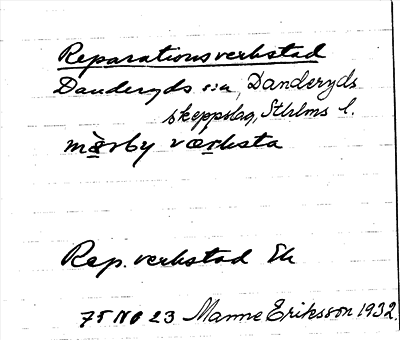 Reparationsverkstad
Danderyds sn, Danderyds
skeppslag, Sthlms l.
mὰrby værksta
Rep. verkstad Ek
75 NO 23 Manne Eriksson 1932.